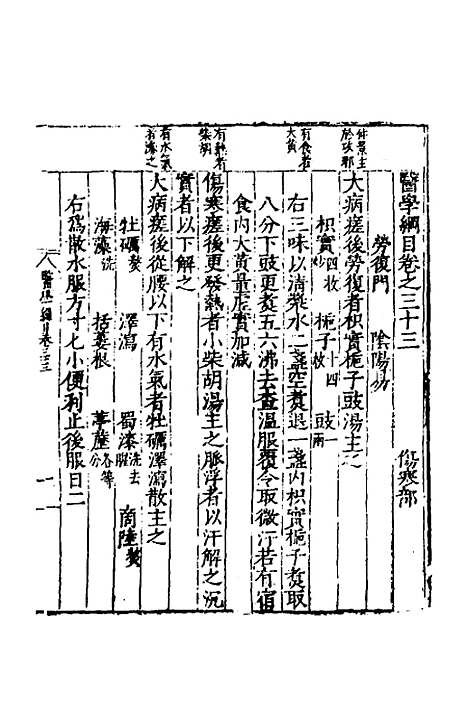 醫學綱目卷之三十三　傷寒部
勞復門　陰陽易
仲景主於攻邪
大病瘥後勞復者枳實梔子豉湯主之
枳實炒四枚　梔子十四枚　豉一兩
有食者大黃
右三味以清漿水二盞空煑退一盞內枳實梔子煑取
八分下豉更煑五六沸去查溫服覆令取微汗若有宿
食內大黃量虛實加減
有熱者柴胡
傷寒瘥後更發熱者小柴胡湯主之脉浮者以汗解之沉
實者以下解之
有水氣者瀉之
大病瘥後從腰以下有水氣者牡礪澤瀉散主之
牡礪熬　澤瀉　蜀漆洗去腥　商陸熬
海藻洗　括蔞根　葶藶各等分
右爲散水服方寸匕小便利止後服日二
醫學綱目卷三三
一